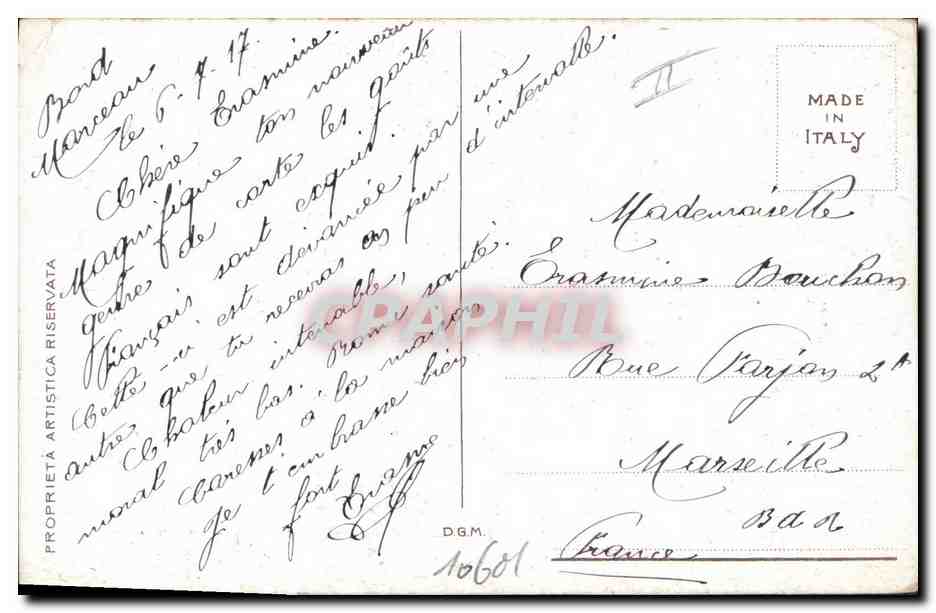 Bord
Marceau
le 6-7-17.
Chère Erasmine.
Magnifique ton nouveau
genre de carte les goûts
français sont exquis.
Cette-ci est devancée par une
autre que tu recevras as peu d'intervalle.
Chaleur intenable,
moral très bas. Bonne santé.
Caresses à la maison
Je t'embrasse bien
fort
Erasme
II
MADE
IN
ITALY
Mademoiselle
Erasmine Bouchan
Rue Farjon 2A
Marseille
B d R
France
PROPRIETÀ ARTISTICA RISERVATA
D.G.M.
10601
CPAPHIL